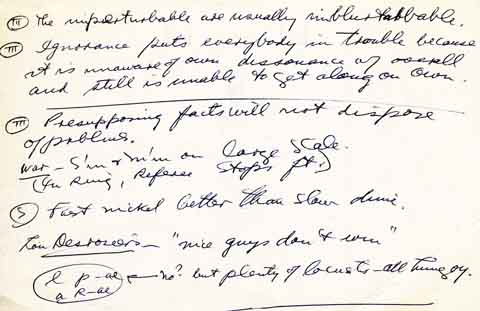 (III) The imperturbable are usually inblurtabbable.
(III) Ignorance puts everybody in trouble because
it is unaware of own dissonance w/ overall
and still is unable to get along on own.
(III) Presupposing facts will not dispose
of problems.
war - S'm & m'm on large scale.
(In Ring, Referee stops ft.)
(S) Fast nickel better than slow dime.
"nice guys don't win"
no? but plenty of locusts - all hungry.